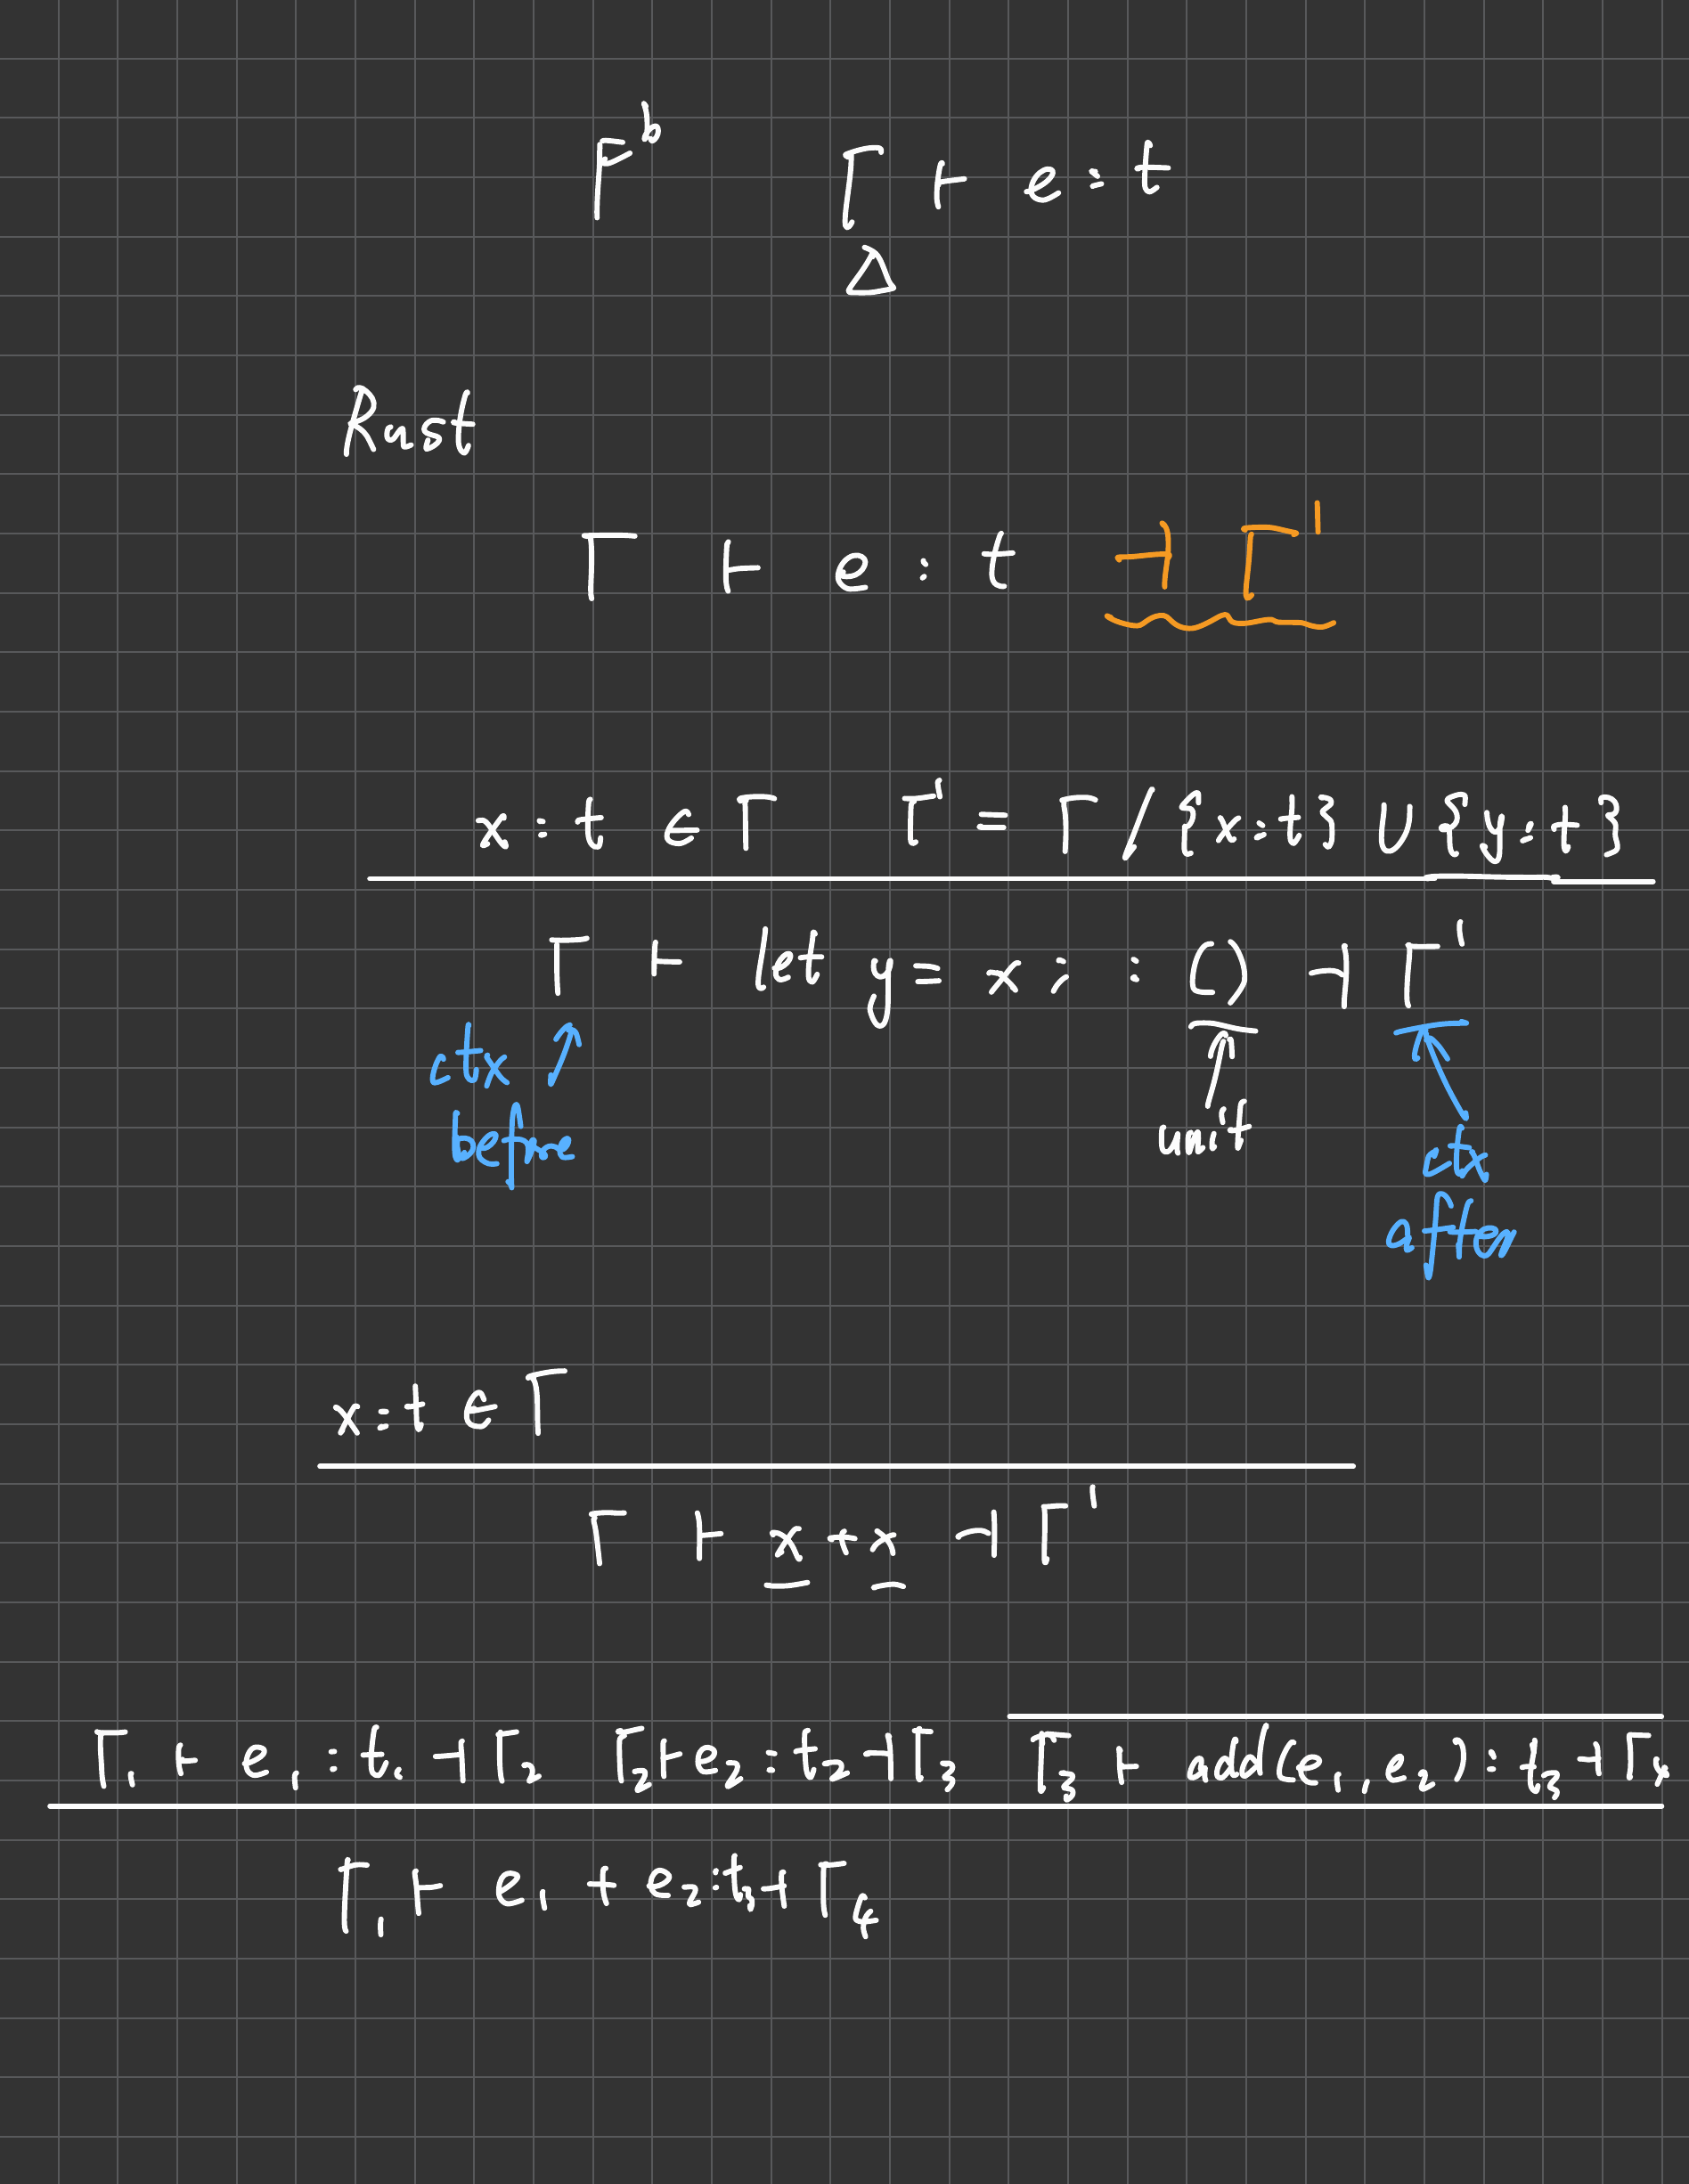 Γᵇ Γ ⊢ e : t
Δ
Rust
Γ ⊢ e : t ⊣ Γ'
x : t ∈ Γ Γ' = Γ / {x : t} ∪ {y : t}
Γ ⊢ let y = x ; : () ⊣ Γ'
ctx before
unit
ctx after
x : t ∈ Γ
Γ ⊢ x + x ⊣ Γ'
Γ₁ ⊢ e₁ : t₁ ⊣ Γ₂ Γ₂ ⊢ e₂ : t₂ ⊣ Γ₃ Γ₃ ⊢ add(e₁, e₂) : t₃ ⊣ Γ₄
Γ₁ ⊢ e₁ + e₂ : t₃ ⊣ Γ₄